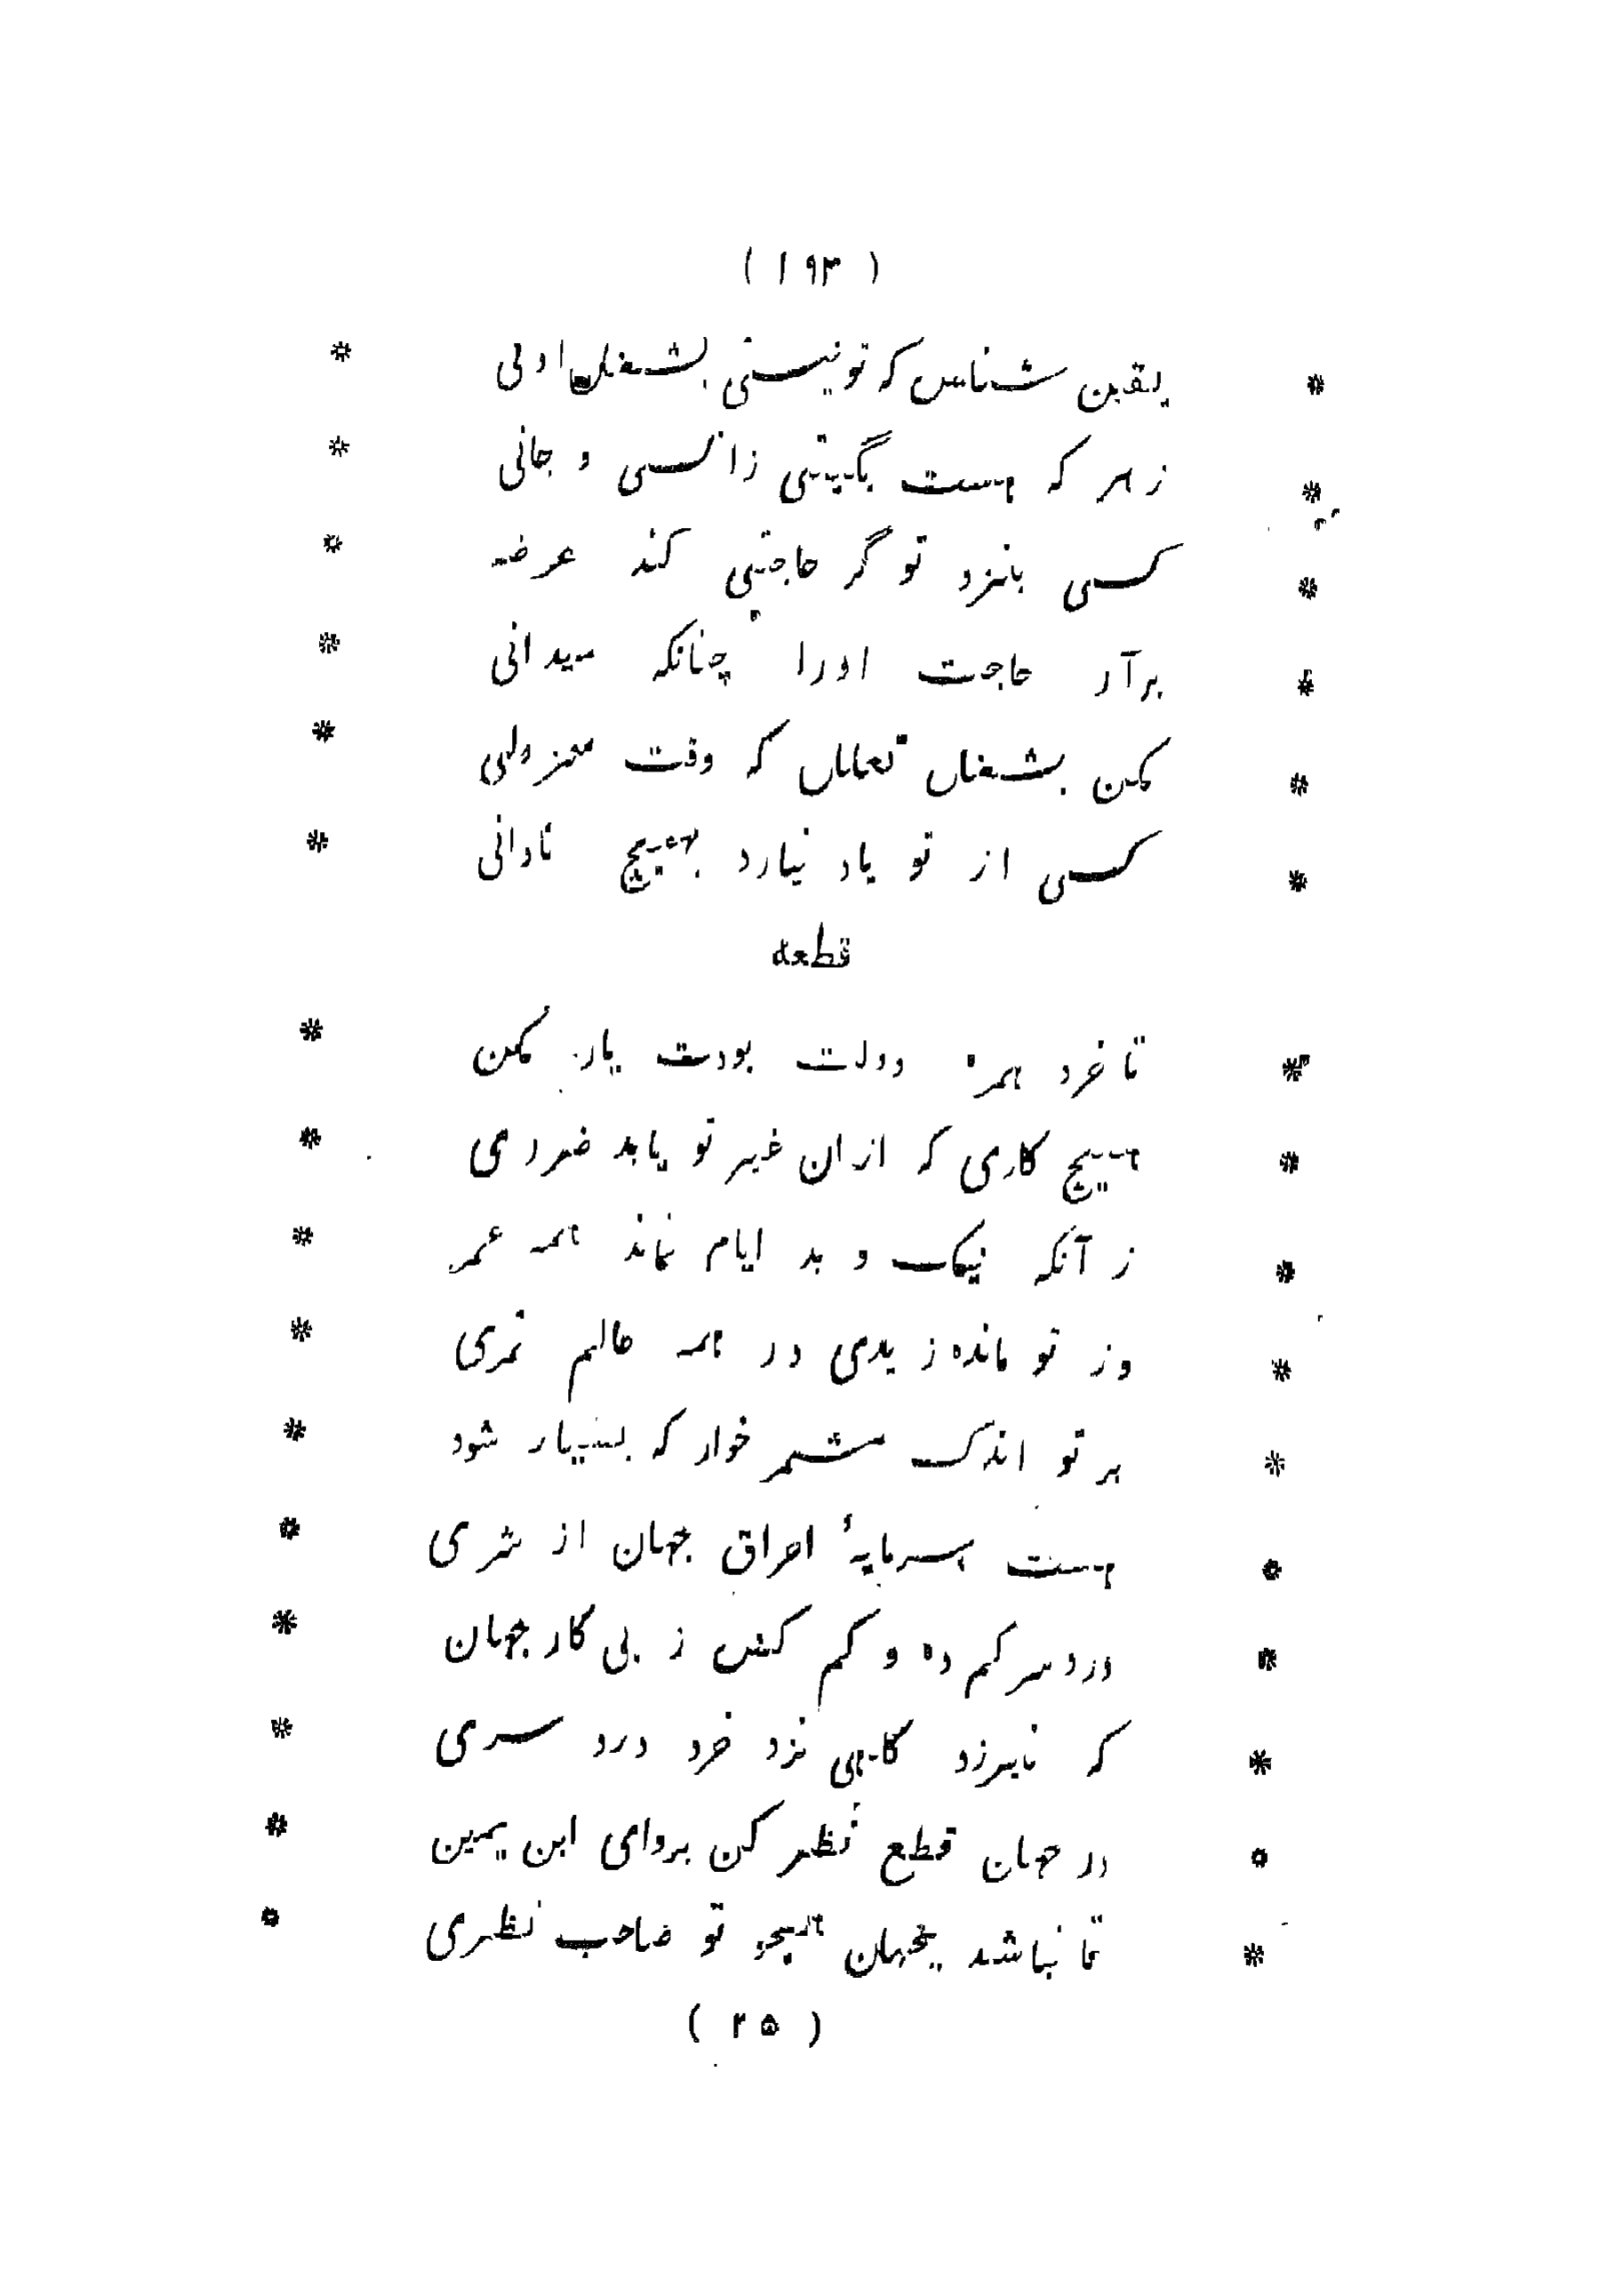 ( ۱۹۳ )
* یقین شناس که تو نیستی بشغل اولی *
* ز هر که هست بگیتی ز انسی و جانی *
* کسی بنزد تو گر حاجتی کند عرضه *
* برآر حاجت اورا چنانکه میدانی *
* مکن بشغل تعلل که وقت معزولی *
* کسی از تو یاد نیارد بهیچ نادانی *
قطعه
* تا خرد همره دولت بودت یار مکن *
* هیچ کاری که ازان غیر تو یابد ضرری *
* ز آنکه نیک و بد ایام نماند همه عمر *
* وز تو مانده ز بدی در همه عالم ثمری *
* بر تو اندک مشمر خوار که بسیار شود *
* هست سرمایهٔ احراق جهان از شرری *
* درد سر کم ده و کم کش ز پی کار جهان *
* که نیرزد کاهی نزد خرد درد سری *
* در جهان قطع نظر کن برو ای ابن یمین *
* تا نباشد بجهان همچو تو صاحب نظری *
( ۲۵ )